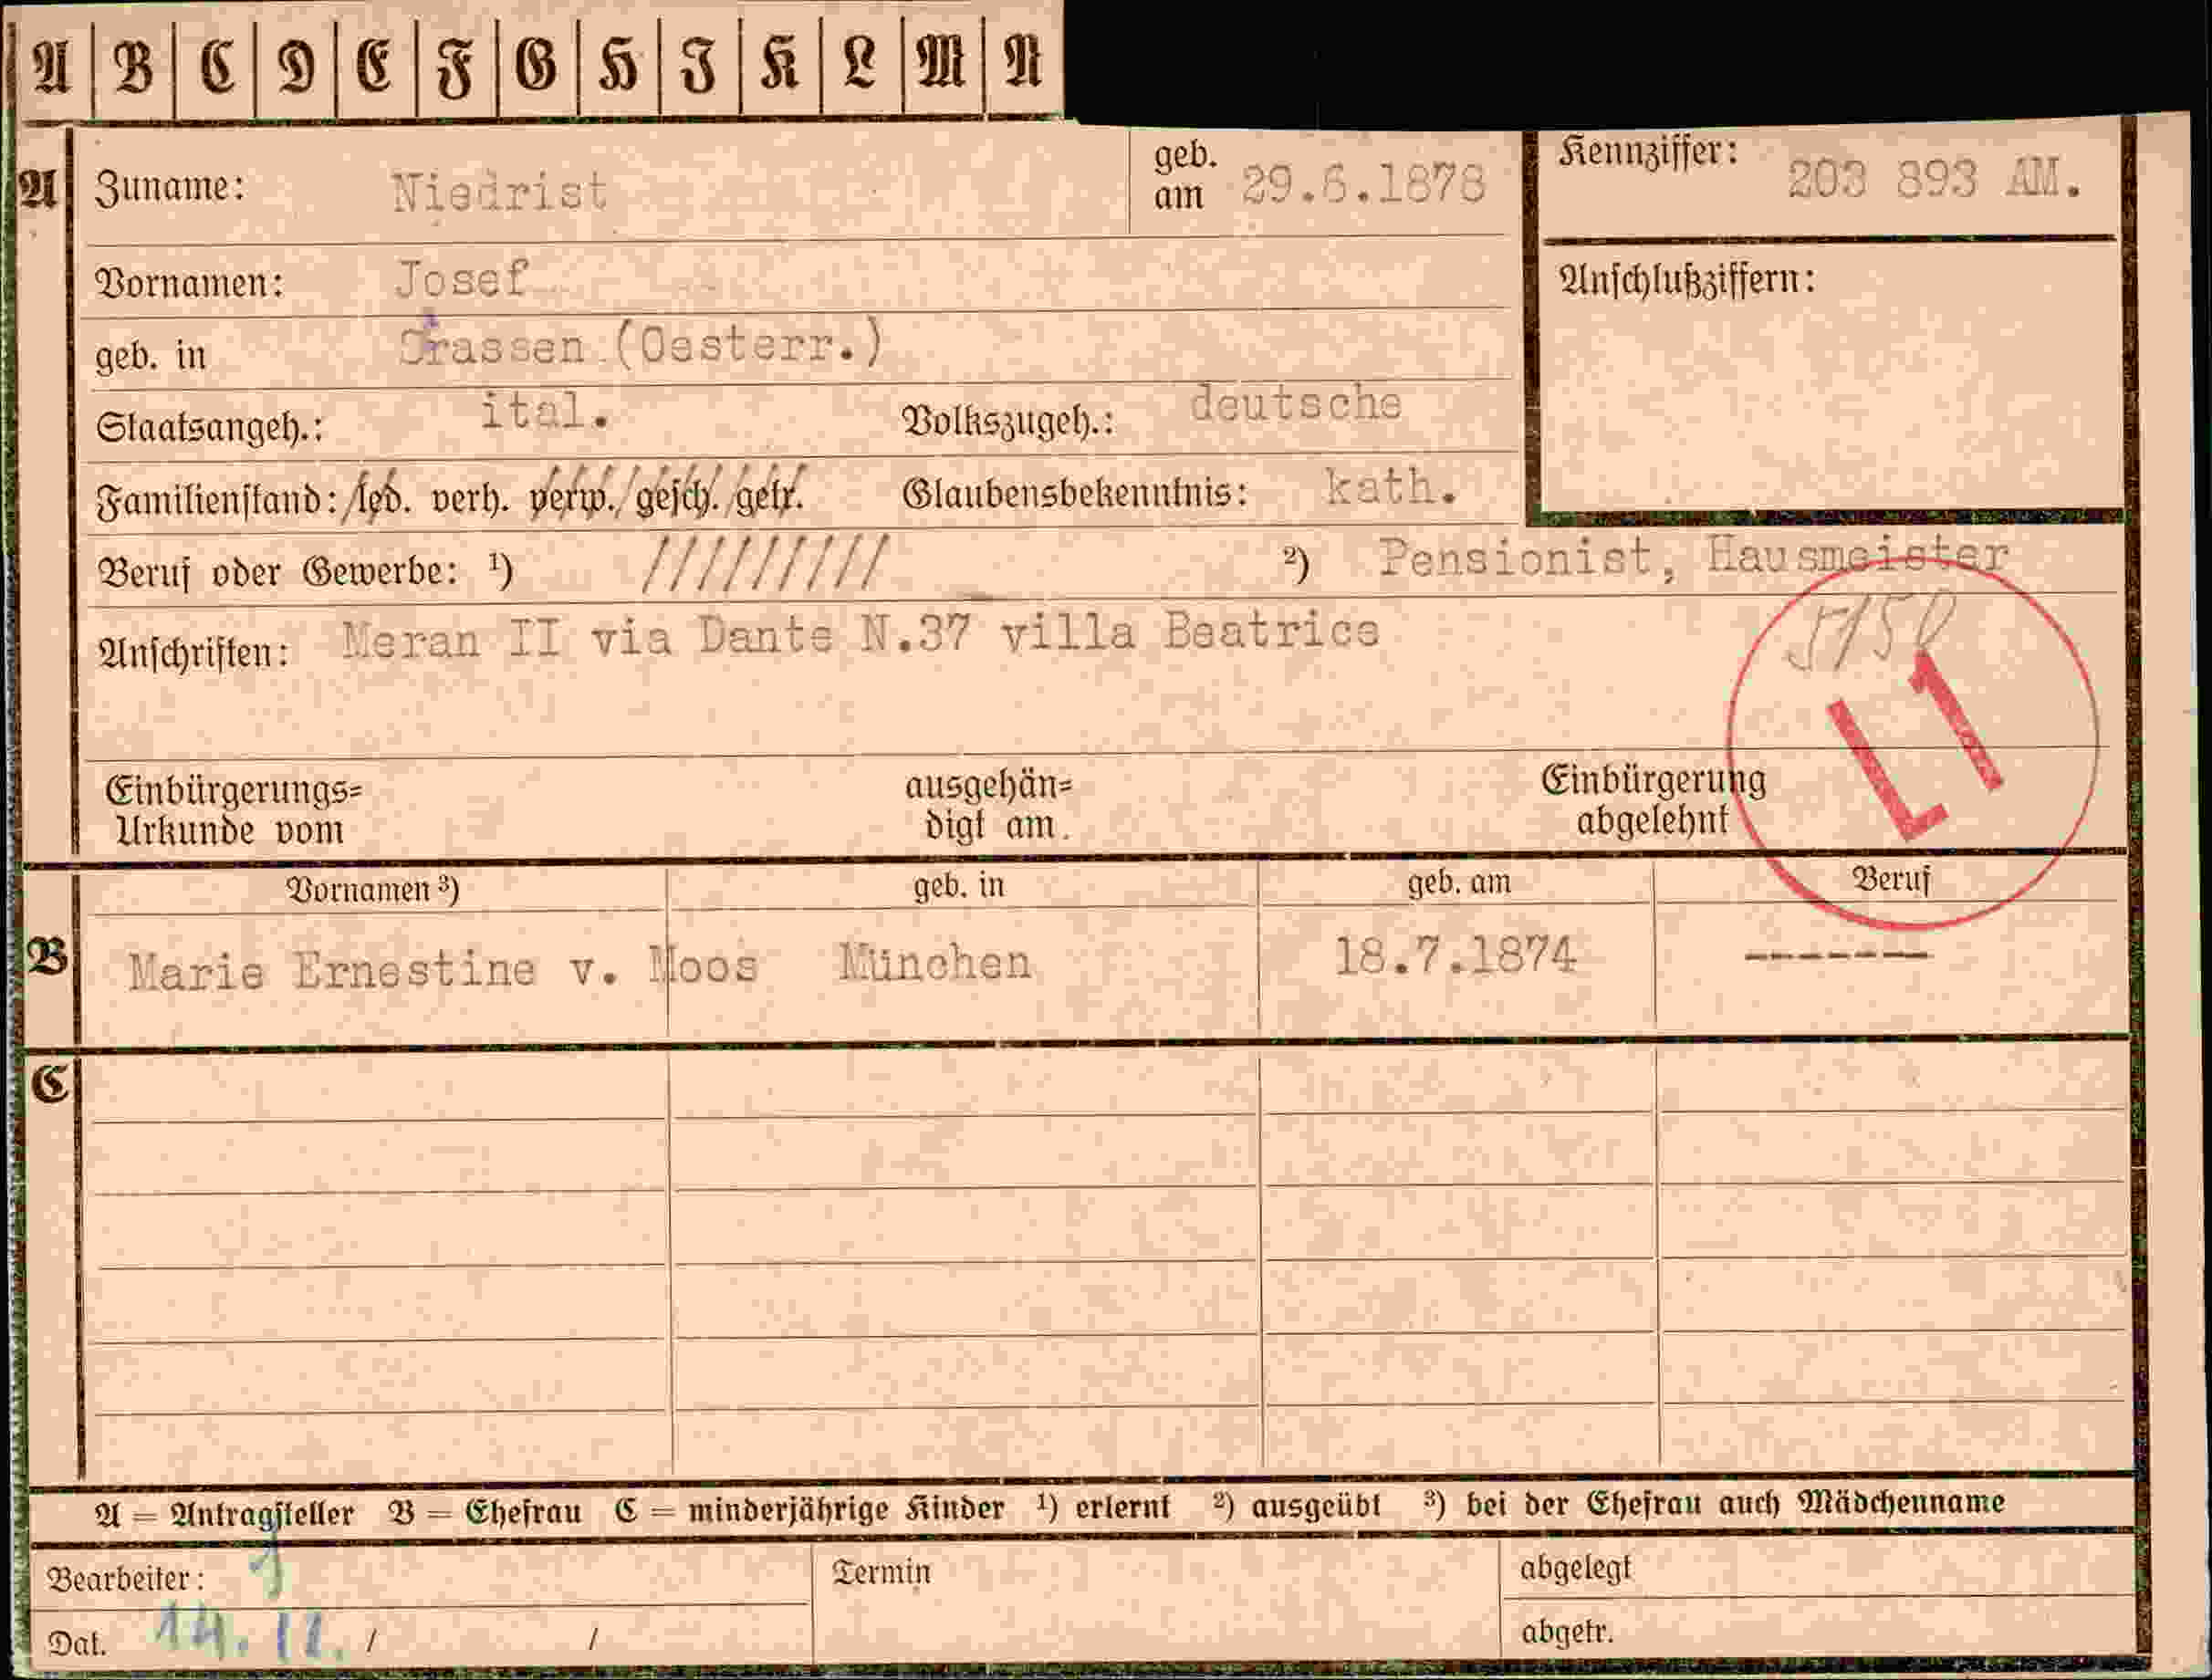 A B C D E F G H I K L M N
A Zuname: Niedrist geb. am 29.6.1878 Kennziffer: 203 893 AM.
Vornamen: Josef Anschlußziffern:
geb. in (Oesterr.)
Staatsangeh.: ital. Volkszugeh.: deutsche
Familienstand: led. verh. verw. gesch. getr. Glaubensbekenntnis: kath.
Beruf oder Gewerbe: ¹) ////////// ²) Pensionist, Hausmeister
Anschriften: Meran II via Dante N.37 villa Beatrice
L1
Einbürgerungs= ausgehän= Einbürgerung
Urkunde vom digt am. abgelehnt
Vornamen ³) geb. in geb. am Beruf
B Marie Ernestine v. Moos München 18.7.1874 -------
C
A = Antragsteller B = Ehefrau C = minderjährige Kinder ¹) erlernt ²) ausgeübt ³) bei der Ehefrau auch Mädchenname
Bearbeiter: Termin abgelegt
Dat. 14. 11. / / abgetr.